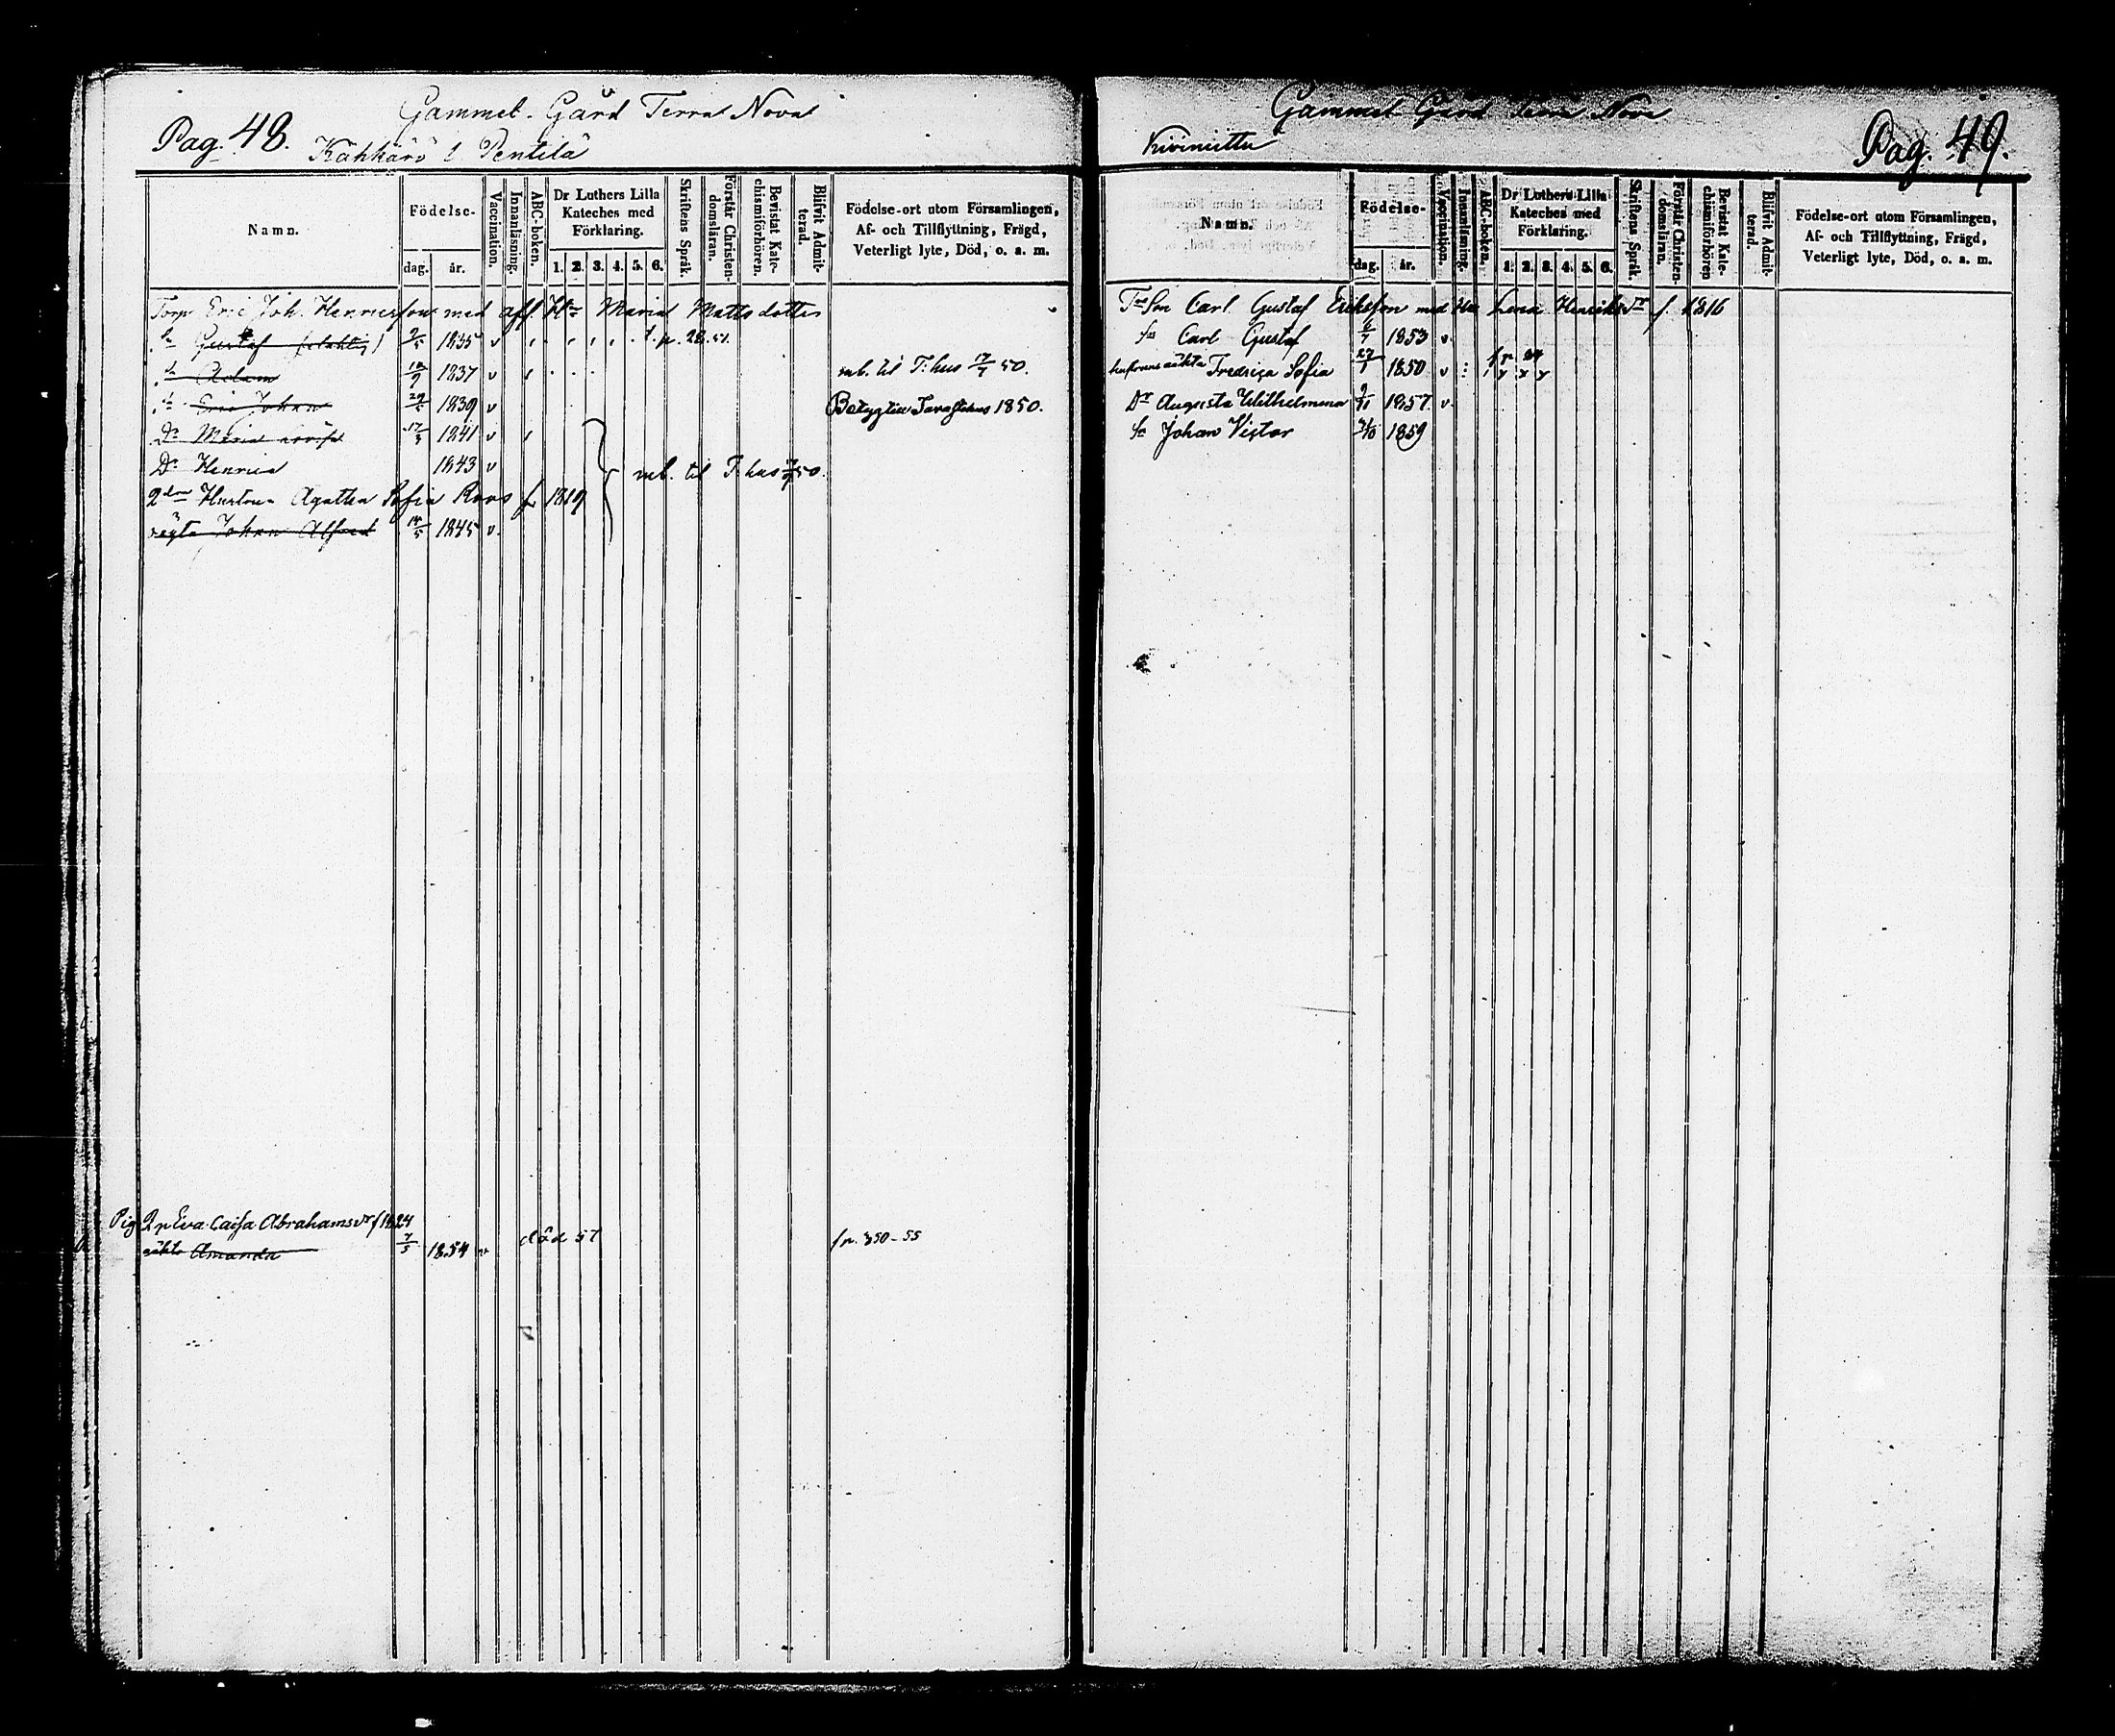 Pag. 48.
Gammel-Gård Terra Nova
Kähkärö l Pentilä
Namn.
Födelse-
dag.
år.
Vaccination.
Innanläsning.
ABC-boken.
Dr Luthers Lilla
Kateches med
Förklaring.
1. 2. 3. 4. 5. 6.
Skriftens Språk.
Förstår Christen-
domsläran.
Bevistat Kate-
chismiförhören.
Blifvit Admit-
terad.
Födelse-ort utom Församlingen,
Af- och Tillflyttning, Frägd,
Veterligt lyte, Död, o. a. m.
Torp. Eric Joh. Henricsson med afl. Hu Maria Mattsdotter
Sn Gustaf 2/5 1835 v p. 28.51
Sn Adam 12/9 1837 v mb. til T:hus 17/7 50.
Sn Eric Johan 29/5 1839 v Betyg till Tavastehus 1850.
Dr Maria Lovisa 17/3 1841 v
Dr Henrica 1843 v mb. til T:hus 17/7 50.
2dra Hustrun Agatha Sofia Roos f 1819
oägta Johan Alfred 14/5 1845 v.
Pig Eva Caisa Abrahamsdr f 1824
oäkta Amanda 7/5 1854 v död 57 fr. 350-55
Gammel-Gård Terra Nova
Kivimiittu
Pag. 49.
Namn.
Födelse-
dag.
år.
Vaccination.
Innanläsning.
ABC-boken.
Dr Luthers Lilla
Kateches med
Förklaring.
1. 2. 3. 4. 5. 6.
Skriftens Språk.
Förstår Christen-
domsläran.
Bevistat Kate-
chismiförhören
Blifvit Admit-
terad.
Födelse-ort utom Församlingen,
Af- och Tillflyttning, Frägd,
Veterligt lyte, Död, o. a. m.
Trs Son Carl Gustaf Eriksson med Hu Lena Henriksdr f. 1816
Sn Carl Gustaf 6/7 1853 v.
hustruns oäkta Fredrica Sofia 27/1 1850 v
Dr Augusta Wilhelmina 9/11 1857 v.
Sn Johan Victor 1859